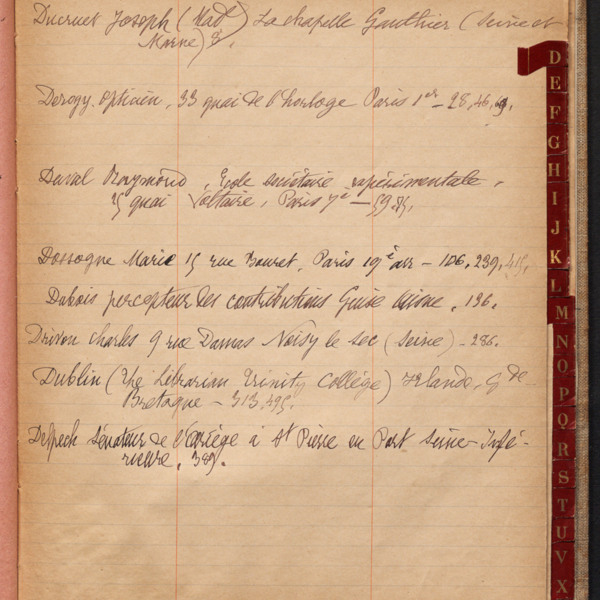 Ducruet Joseph (Mad) La chapelle Gauthier (Seine et
Marne) 8.
Derogy. Opticien, 33 quai de l'horloge Paris 1er - 28, 46, 69.
Duval Raymond, École sanitaire expérimentale,
15 quai Voltaire, Paris 7e - 59.85.
Dossogne Marie 15 rue Bouret, Paris 19e arr - 106, 239, 415.
Dubois percepteur des contributions Guise Aisne, 136.
Drivon charles 9 rue Damas Noisy le Sec (Seine) - 286.
Dublin (The Librarian Trinity Collège) Irlande, Gde
Bretagne - 313, 495.
Delpech Sénateur de l'Ariège à St Pierre en Port Seine-Infé-
rieure, 389.
D
E
F
G
H
I
J
K
L
M
N
O
P
Q
R
S
T
U
V
X